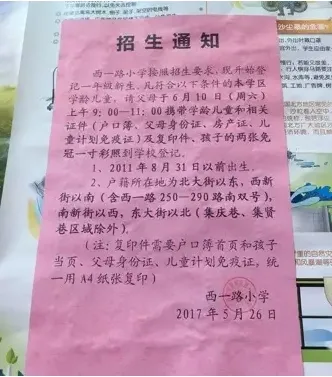 招生通知
西一路小学按照招生要求，现开始登
记一年级新生。凡符合以下条件的本学区
学龄儿童，请父母于6月10日（周六）
上午9：00—11：00携带学龄儿童和相关
证件（户口簿、父母身份证、房产证、儿
童计划免疫证）及复印件、孩子的两张免
冠一寸彩照到学校登记。
1、2011年8月31日以前出生。
2、户籍所在地为北大街以东，西新
街以南（含西一路250—290路南双号），
南新街以西，东大街以北（集庆巷、集贤
巷区域除外）。
（注：复印件需要户口簿首页和孩子
当页、父母身份证、儿童计划免疫证，统
一用A4纸张复印）
西一路小学
2017年5月26日